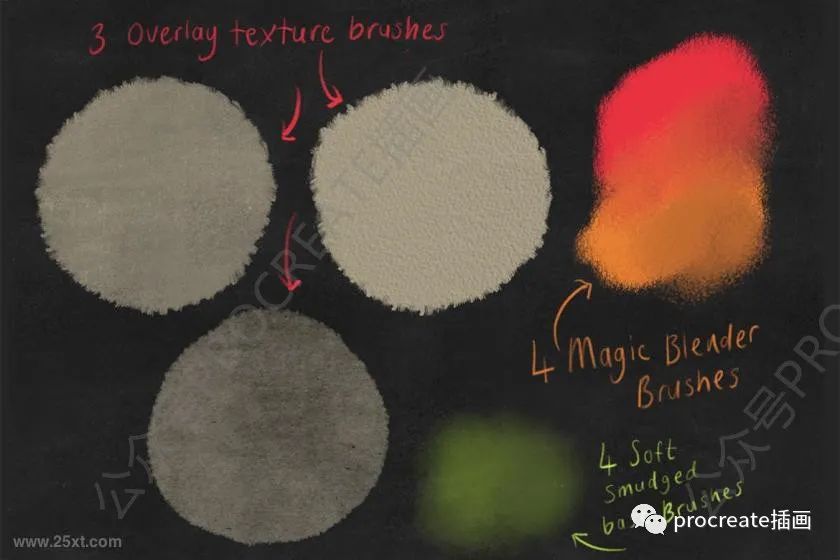 3 Overlay texture brushes
4 Magic Blender
Brushes
4 Soft
smudged
Brushes
procreate插画
www.25xt.com
公众号PROCREATE插画
公众号PRO